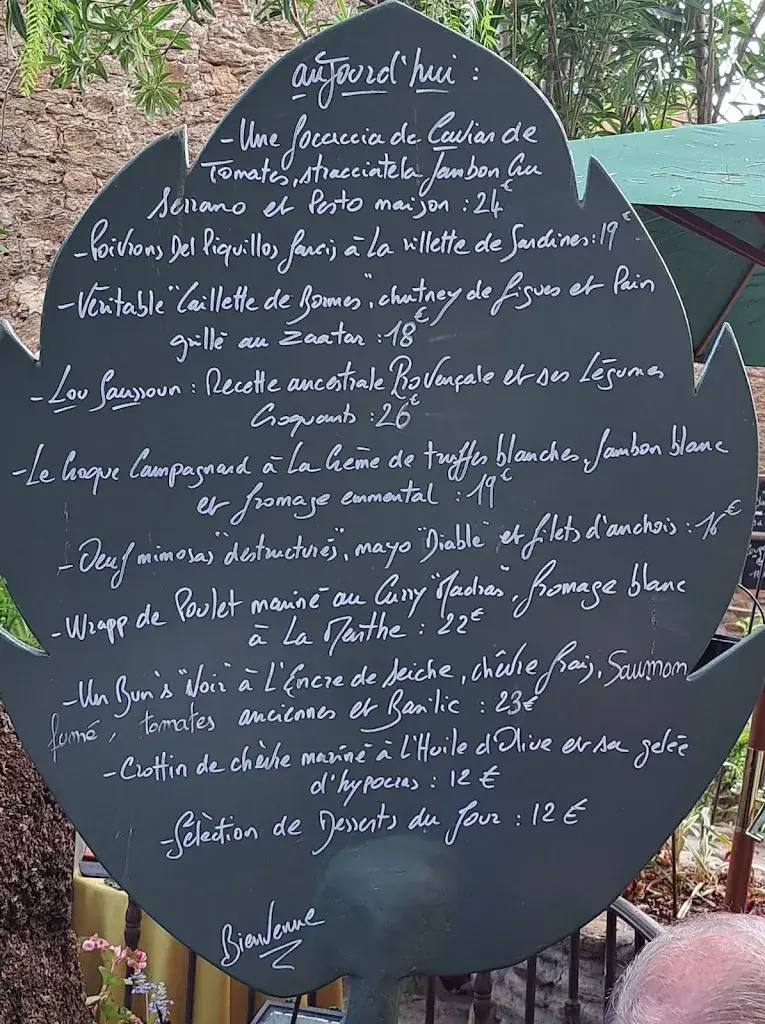 aujourd'hui :
- Une focaccia de Caviar de
Tomates, stracciatela Jambon Cru
Serrano et Pesto maison : 24€
- Poivrons Del Piquillos farcis à La rillette de Sardines : 19€
- Véritable "Caillette de Bormes", chutney de figues et Pain
grillé au Zaatar : 18€
- Lou Saussoun : Recette ancestrale Provençale et ses Légumes
Croquants : 26€
- Le Croque Campagnard à La Crème de truffes blanches, Jambon blanc
et fromage emmental : 19€
- Oeuf mimosas "destructurés", mayo "Diable" et filets d'anchois : 16€
- Wrapp de Poulet mariné au Curry "Madras", fromage blanc
à La Menthe : 22€
- Un Bun's "Noir" à L'Encre de Seiche, chèvre frais, Saumon
fumé, tomates anciennes et Basilic : 23€
- Crottin de chèvre mariné à L'Huile d'Olive et sa gelée
d'hypocras : 12 €
- Sélèction de Desserts du Jour : 12 €
Bienvenue